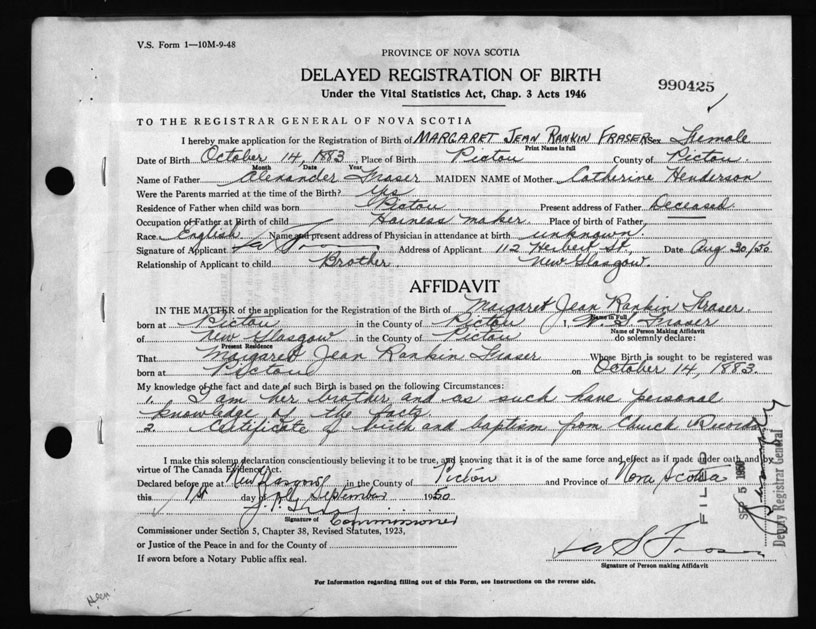 V.S. Form 1—10M-9-48
PROVINCE OF NOVA SCOTIA
DELAYED REGISTRATION OF BIRTH
Under the Vital Statistics Act, Chap. 3 Acts 1946
990425
TO THE REGISTRAR GENERAL OF NOVA SCOTIA
I hereby make application for the Registration of Birth of MARGARET JEAN RANKIN FRASER Sex Female
Print Name in full
Date of Birth October 14, 1883, Place of Birth Pictou County of Pictou.
Month Date Year
Name of Father Alexander Fraser MAIDEN NAME of Mother Catherine Henderson
Were the Parents married at the time of the Birth? Yes
Residence of Father when child was born Pictou Present address of Father Deceased.
Occupation of Father at Birth of child Harness maker. Place of birth of Father,
Race. English Name and present address of Physician in attendance at birth unknown.
Signature of Applicant Address of Applicant 112 Herbert St. Date Aug 30/50
Relationship of Applicant to child Brother. New Glasgow.
AFFIDAVIT
IN THE MATTER of the application for the Registration of the Birth of Margaret Jean Rankin Fraser.
Name in Full
born at Pictou in the County of Pictou I, Fraser
Name of Person Making Affidavit
of New Glasgow in the County of Pictou do solemnly declare:
Present Residence
That Margaret Jean Rankin Fraser Whose Birth is sought to be registered was
born at Pictou on October 14, 1883.
My knowledge of the fact and date of such Birth is based on the following Circumstances:
1. I am her brother and as such have personal
knowledge of the facts.
2. Certificate of birth and baptism from Church Records
I make this solemn declaration conscientiously believing it to be true, and knowing that it is of the same force and effect as if made under oath and by
virtue of The Canada Evidence Act.
Declared before me at New Glasgow in the County of Pictou and Province of Nova Scotia
this 1st day of September 1950
Signature of Commissioner
Commissioner under Section 5, Chapter 38, Revised Statutes, 1923,
or Justice of the Peace in and for the County of
If sworn before a Notary Public affix seal.
Signature of Person making Affidavit
For Information regarding filling out of this Form, see Instructions on the reverse side.
FILED
SEP 5 1950
Deputy Registrar General